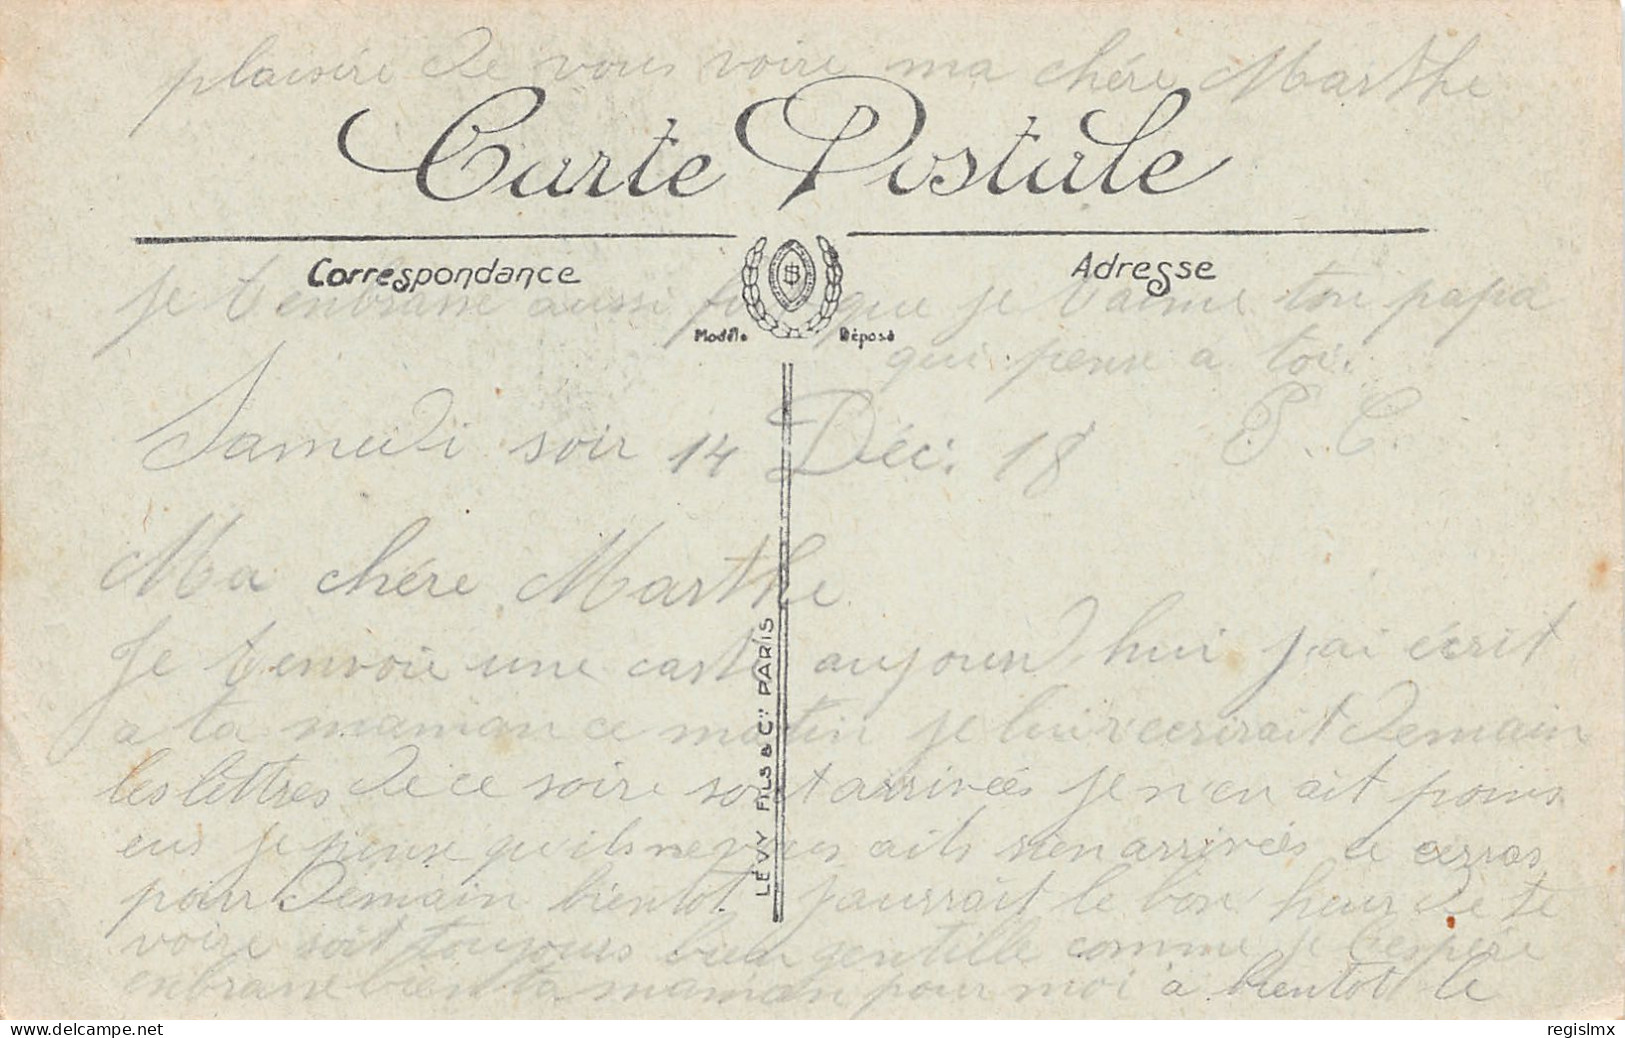 plaisire de vous voire ma chére Marthe
Carte Postale
Correspondance
Adresse
Je t'enbrasse aussi que je t'aime ton papa
Modèle Déposé
qui pense a toi.
P. C.
Samedi soir 14 Déc. 18
Ma chére Marthe
Je t'envoie une carte aujourd'hui j'ai écrit
a ta maman ce matin je lui recrirait demain
les lettres de ce soire sont arrivées je n'en ait poins
eus je pense qu'ils ne arrivées
pour demain bientot j'aurrait le bon heur de te
voire soit toujours bien gentille comme je l'espére
enbrasse bien ta maman pour moi a bientot le
LÉVY FILS & Cie PARIS
regislmx
delcampe.net